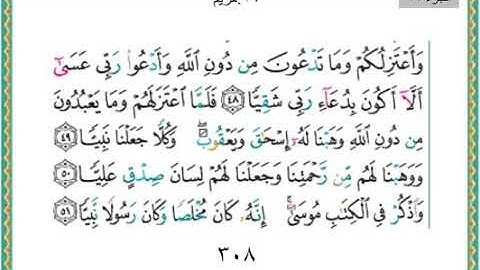 وَأَعْتَزِلُكُمْ وَمَا تَدْعُونَ مِن دُونِ اللَّهِ وَأَدْعُوا رَبِّي عَسَىٰٓ
أَلَّآ أَكُونَ بِدُعَآءِ رَبِّي شَقِيًّا ٤٨ فَلَمَّا اعْتَزَلَهُمْ وَمَا يَعْبُدُونَ
مِن دُونِ اللَّهِ وَهَبْنَا لَهُۥٓ إِسْحَٰقَ وَيَعْقُوبَ ۖ وَكُلًّا جَعَلْنَا نَبِيًّا ٤٩
وَوَهَبْنَا لَهُم مِّن رَّحْمَتِنَا وَجَعَلْنَا لَهُمْ لِسَانَ صِدْقٍ عَلِيًّا ٥٠
وَاذْكُرْ فِي الْكِتَٰبِ مُوسَىٰٓ ۚ إِنَّهُۥ كَانَ مُخْلَصًا وَكَانَ رَسُولًا نَّبِيًّا ٥١
٣٠٨